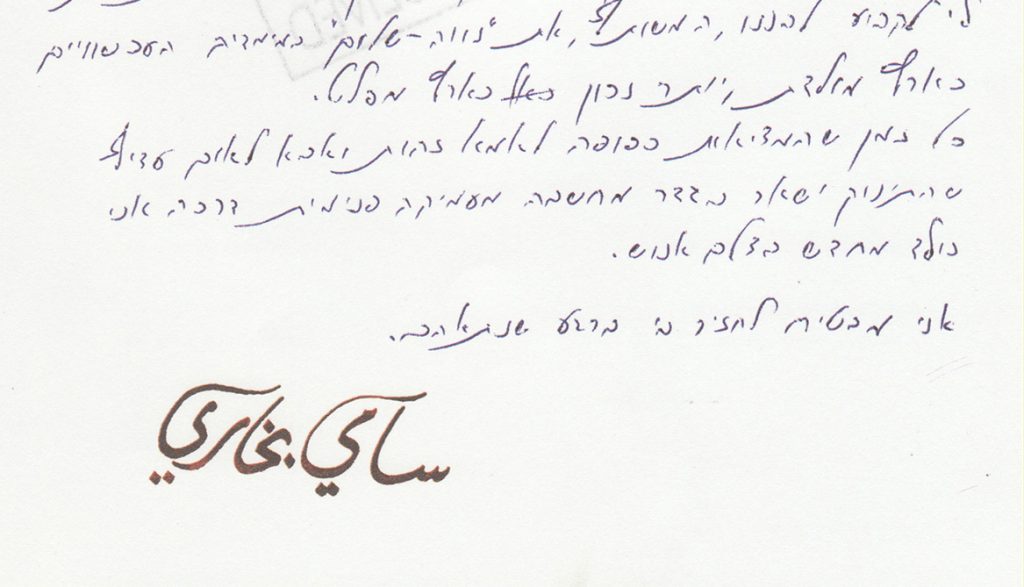 לי לקבוע לבננו, המשותף, את "נווה-שלום" במימדים העכשוויים
כארץ מולדת, יותר נכון כארץ מפלט.
כל זמן שהמציאות כפופה לאמא זהות ואבא לאום עדיף
שהתינוק ישאר בגדר מחשבה מעמיקה פנימית דרכה אני
נולד מחדש בצלם אנוש.
אני מבטיח לחזיר כי ברגע שנתאהב.
سامي بخاري